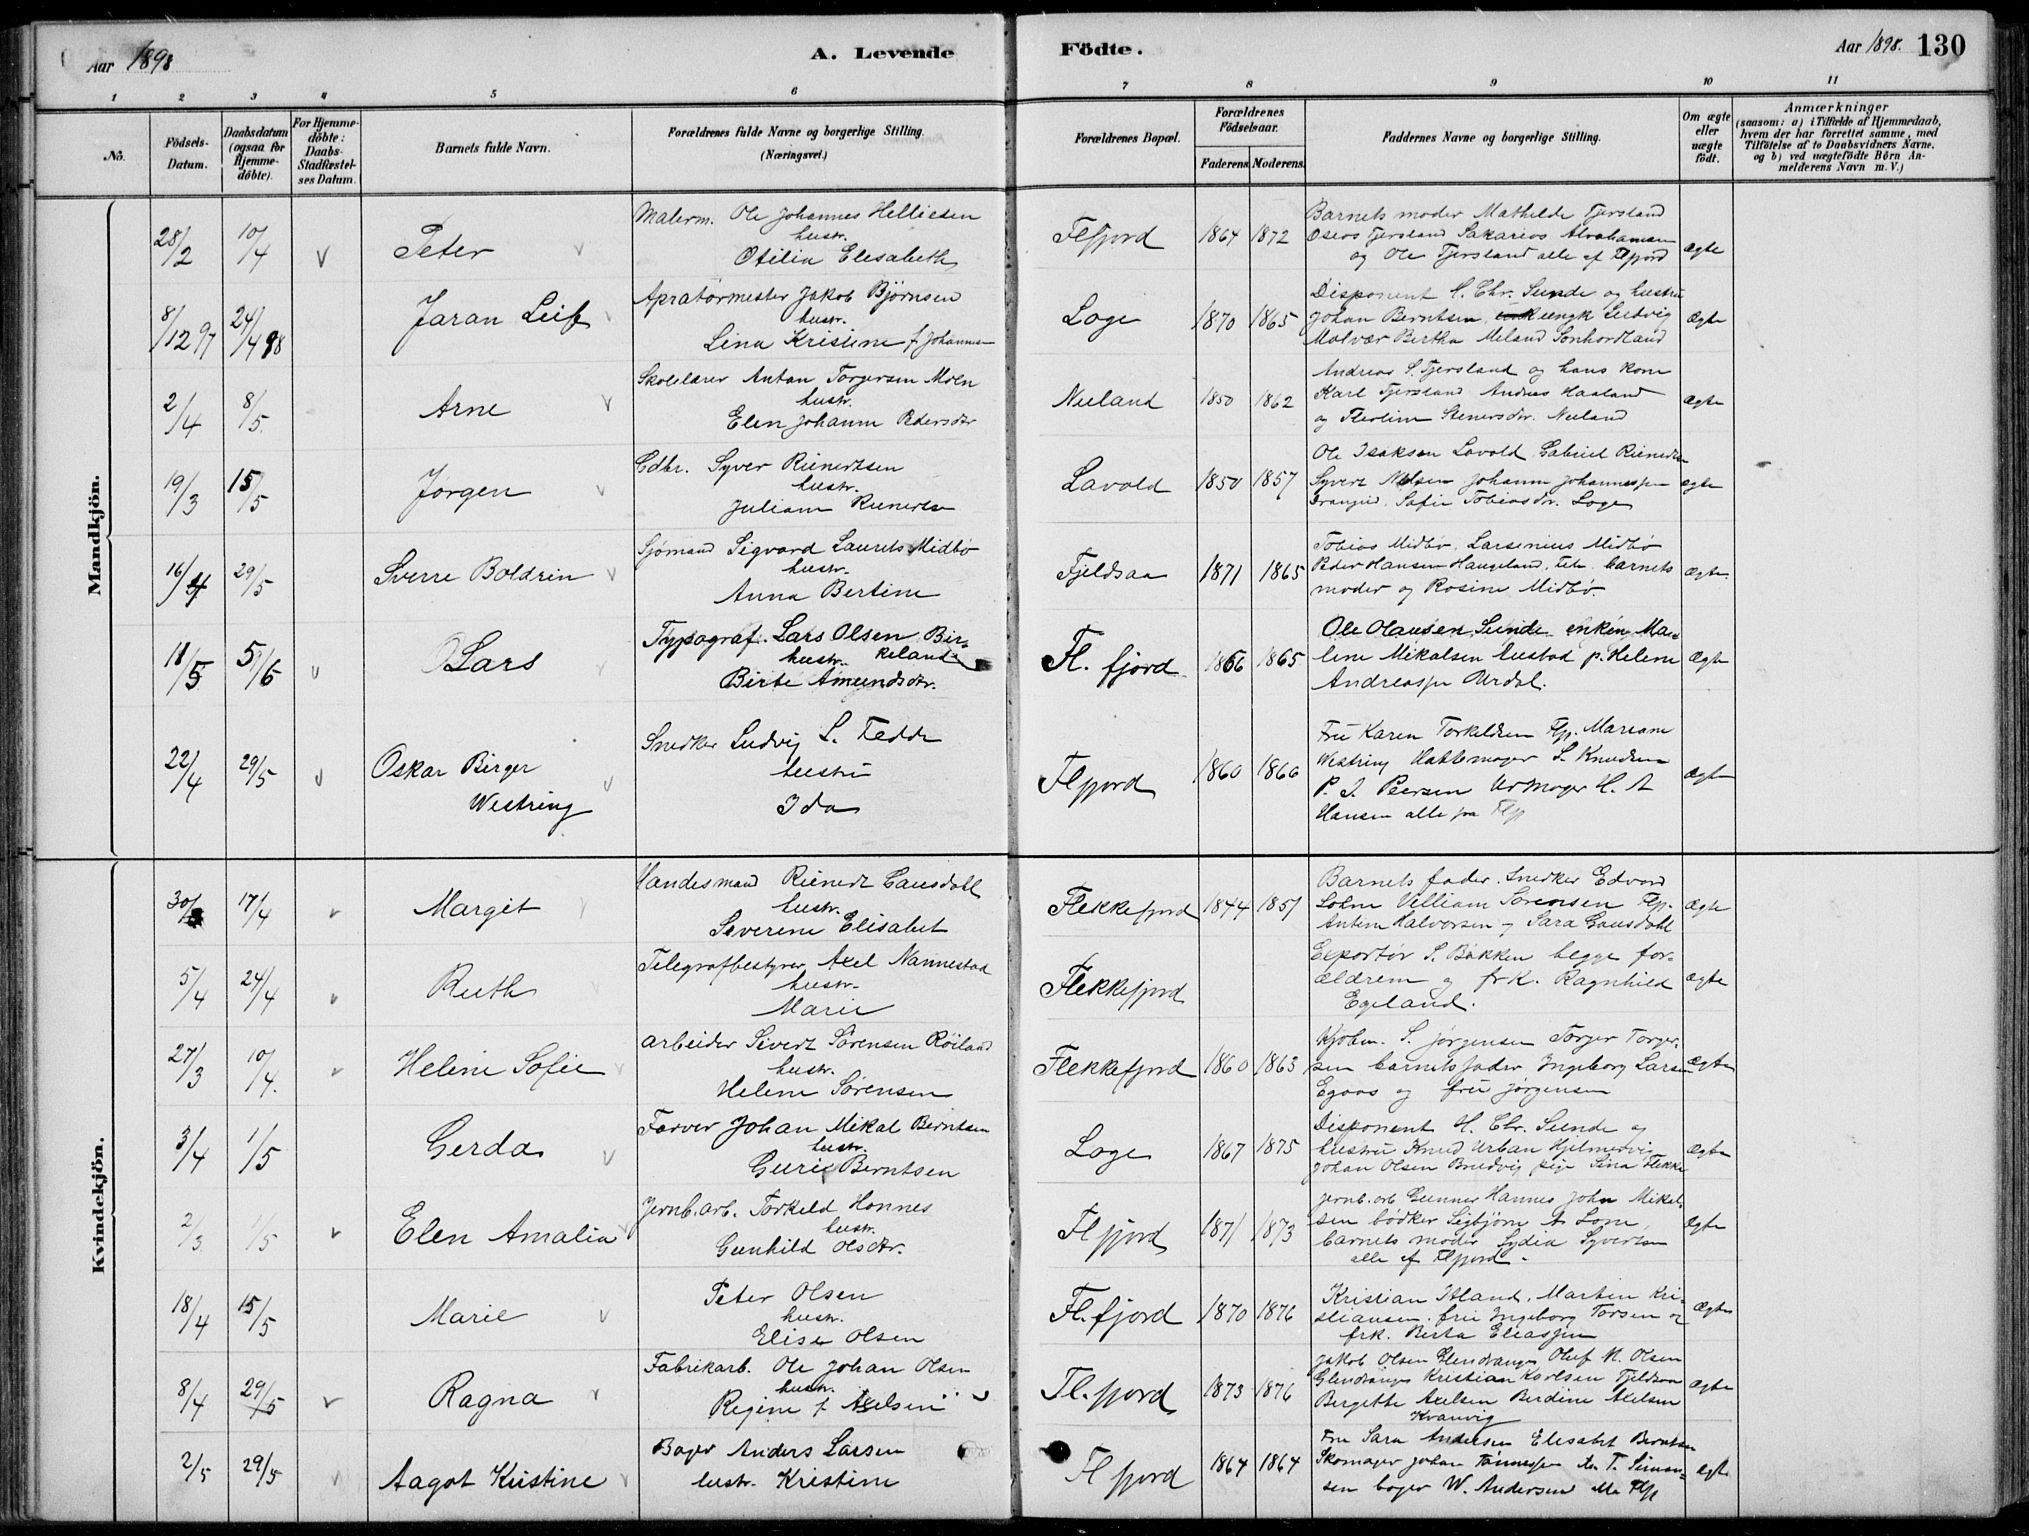 Aar 1898
A. Levende
Födte.
Aar 1898. 130
1 2 3 4 5 6 7 8 9 10 11
No.
Födsels-
Datum.
Daabsdatum
(ogsaa for
Hjemme-
döbte).
For Hjemme-
döbte:
Daabs-
Stadfæstel-
ses Datum.
Barnets fulde Navn.
Forældrenes fulde Navne og borgerlige Stilling.
(Næringsvei.)
Forældrenes Bopæl.
Forældrenes
Födselsaar.
Faderens. Moderens.
Faddernes Navne og borgerlige Stilling.
Om ægte
eller
uægte
födt.
Anmærkninger
(saasom: a) i Tilfælde af Hjemmedaab,
hvem der har forrettet samme, med
Tilföielse af to Daabsvidners Navne,
og b) ved uægtefödte Börn An-
melderens Navn m. V.)
Mandkjön.
28/2 10/4 Peter
Malerm. Ole Johannes Helliesen
hustr.
Otilia Elisabeth
Flfjord 1864 1872
Barnets moder Mathilde Tjersland
Oseas Tjersland Sakarias Abrahamsen
og Ole Tjersland alle af Flfjord
ægte
8/12 97 24/4 98 Jaran Leif
Apratørmester Jakob Bjørnsen
hustr.
Lina Kristine f Johannes
Loge 1870 1865
Disponent H. Chr. Sunde og hustru
Johan Berntsen, ungk Ludvig
Malvær Bertha Meland Sonhordland
ægte
2/4 8/5 Arne
Skolelærer Anton Torgersen Moen
hustr.
Elen Johanne Pedersdtr
Nuland 1850 1862
Andreas S. Tjersland og hans kone
Karl Tjersland Andreas Haaland
og Stenersdtr. Nuland
ægte
19/3 15/5 Jørgen
Gdbr. Syver Rienertsen
hustr.
Juliane Rienertsen
Lavold 1850 1857
Ole Isaksen Lavold Gabriel Rienertsen
Syvert Nilsen Johanne Johannesen
Sofie Tobiasdtr. Loge
ægte
16/4 29/5 Sverre Boldvin
Sjömand Sigvard Laurits Midbø
hustr.
Anna Bertine
Fjeldsaa 1871 1865
Tobias Midbø. Larsenius Midbø
Peder Hansen Haugeland, Feda barnets
moder og Rosine Midbø.
ægte.
18/5 5/6 Lars
Typograf. Lars Olsen Bir-
hustr. keland
Birte Amundsdtr.
Fl. fjord 1866 1865
Ole Olausen Sunde enken Ma-
lene Mikalsen Eustad p. Helene
Andreasen Urdal.
ægte
22/4 29/5 Oskar Birger
Westring
Snedker Ludvig L. Fedde
hustru
Ida
Flfjord 1860 1866
Fru Karen Torkildsen Flfj. Mariane
Westring Hattemager S. Knudsen
P. J. Peersen Urmager H. A
Hansen alle fra Flfj
ægte
Kvindekjön.
30/3 17/4 Margit
Handesmand Rienert Gausdahl
hustr.
Severine Elisabet
Flekkefjord 1844 1851
Barnets fader. Snedker Edvard
Lohne Villiam Sørensen Flfj.
Antine Halvorsen og Sara Gausdahl
ægte
5/4 24/4 Ruth
Telegrafbestyrer Axel Nannestad
hustr.
Marie
Flekkefjord
Exportør S. Bakken begge for-
ældrene og frk. Ragnhild
Egeland.
ægte
27/3 10/4. Helene Sofie
Arbeider Sivert Sørensen Røiland
hustr.
Helene Sørensen
Flekkefjord 1860 1863
Kjøbm. S. Jørgensen Torger Torger-
sen barnets fader Ingeborg Larsen
Egaas og fru Jørgensen
ægte
3/4 1/5 Gerda
Farver Johan Mikal Berntsen
hustr.
Guri Berntsen
Loge 1867 1875
Disponent H. Chr. Sunde og
hustru Knud Urban Hjelmervig
Johan Olsen Bredvig pige Sina Flekke
ægte
2/3 1/5 Elen Amalia
Jernb. arb. Torkild Honnes
hustr.
Gunhild Olsdtr.
Flfjord 1871 1873
Jernb. arb Gunner Hannes John Mikal-
sen bødker Sigbjørn A. Lone,
barnets moder Lydia Syvertsen
alle af Flfjord
ægte
18/4 15/5 Marie
Peter Olsen
hustr.
Elise Olsen
Fl. fjord 1870 1876
Kristian Itland. Martin Kri-
stiansen. fru Ingeborg Torsen og
frk. Berta Eliassen
ægte
8/4 29/5 Ragna
Fabrikarb. Ole Johan Olsen
hustr.
Regine f. Axelsen
Fl. fjord 1873 1876
Jakob Olsen Glendrange Oluf M. Olsen
Glendrange Kristian Karlsen Fjeldsaa
Bergitte Axelsen Berdine Axelsen
Kvanvig
ægte
2/5 29/5 Aagot Kristine
Bager Anders Larsen
hustr. Kristine
Flfjord 1864 1864
Fru Sara Andersen Elisabet Berntsen
Skomager Johan Tønnessen T. Simon-
sen bager W. Andersen alle Flfj
ægte